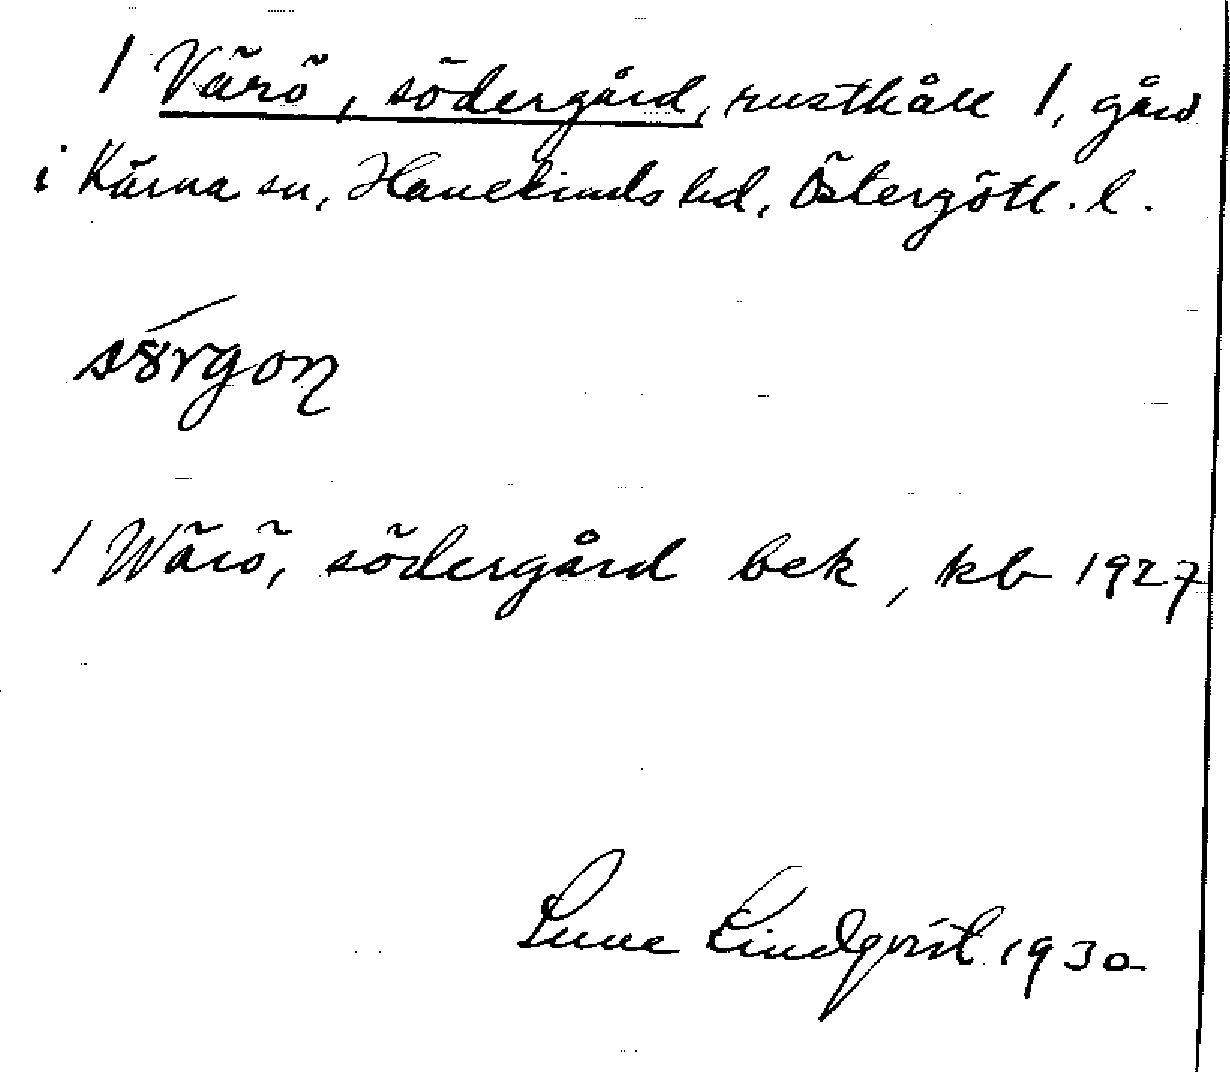 1 Värö, södergård, rusthåll 1, gård
i Kärna sn, Hanekinds hd, Östergötl. l.
sörgoɳ
1 Wärö, södergård bek, kb 1927
Sune Lindqvist 1930